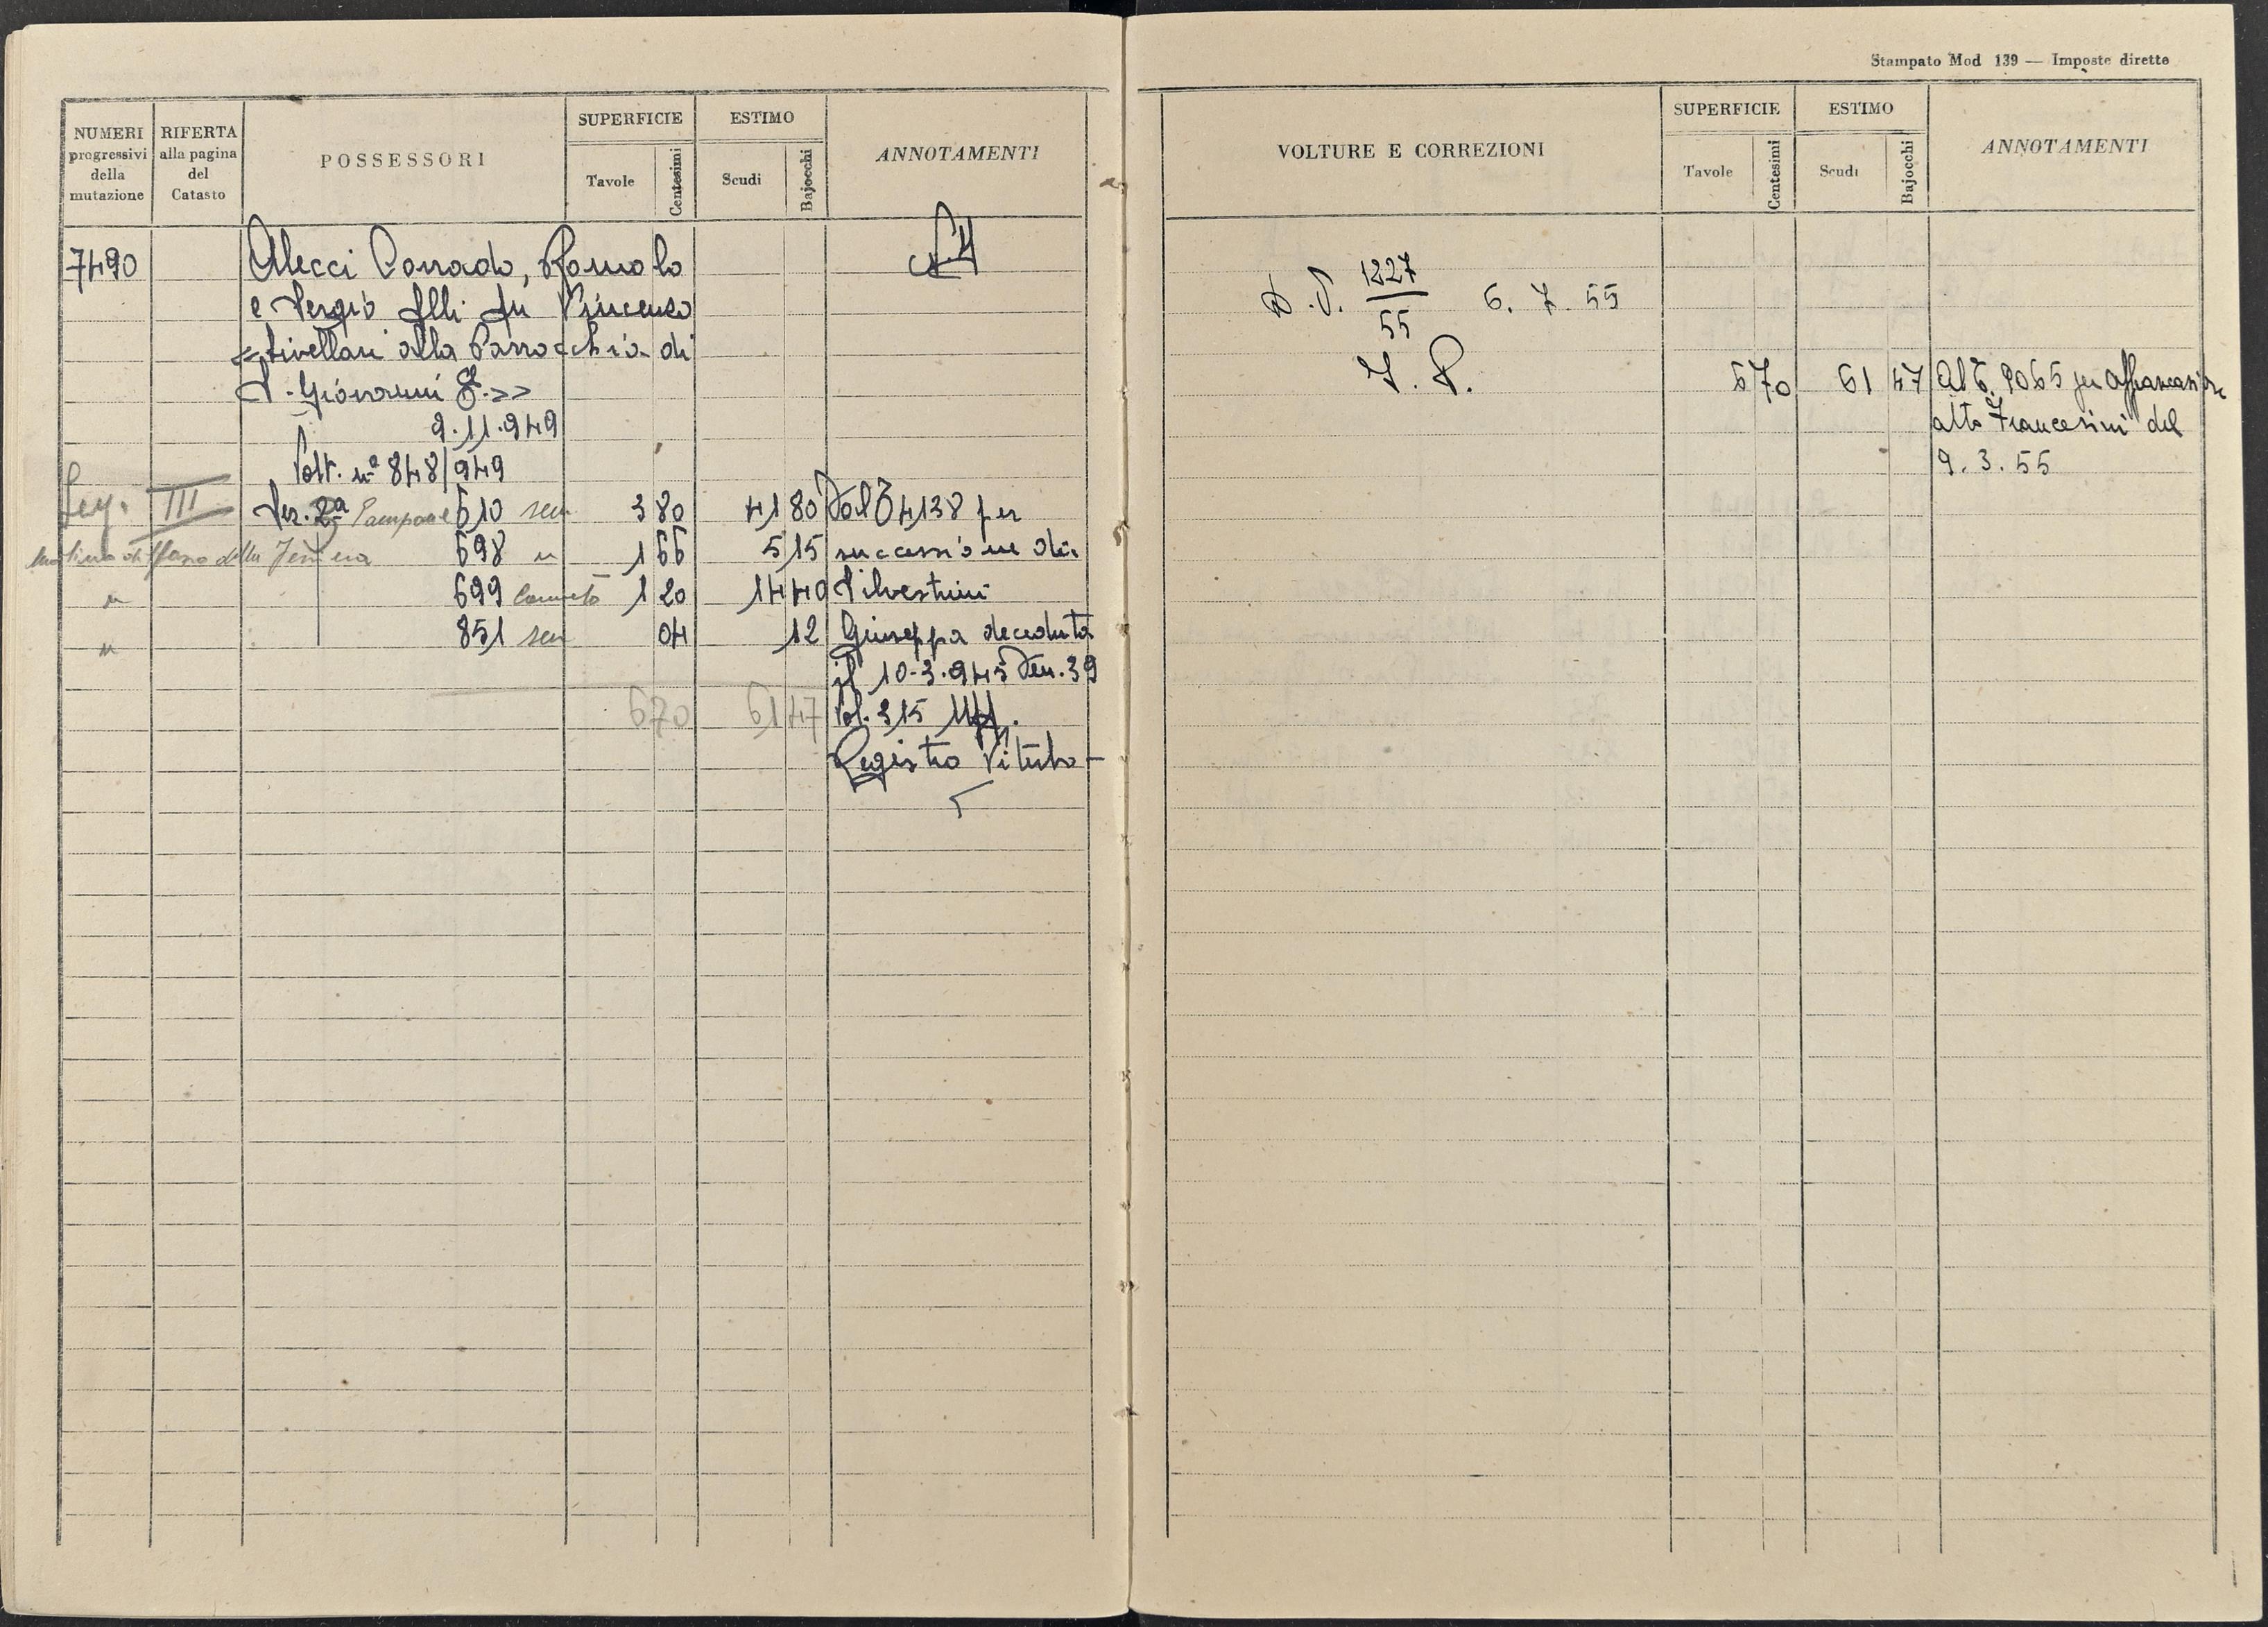 Stampato Mod 139 — Imposte dirette
NUMERI progressivi della mutazione
RIFERTA alla pagina del Catasto
POSSESSORI
SUPERFICIE
Tavole
Centesimi
ESTIMO
Scudi
Bajocchi
ANNOTAMENTI
7490
Alecci Corrado, Romolo
e Sergio flli fu Vincenzo
livellari alla Parrocchia di
S. Giovanni
9.11.949
Volt. nº 848/949
Sez. III
Ser. 2a 610 sem 3 80 41 80 Dal 4138 per
698 " 1 66 5 15 successione di
699 Canneto 1 20 14 40 Silvestrini
" 851 sem 04 12 Giuseppa deceduta
il 10-3-945 Den. 39
6 70 61 47 Vol. 315 Uff.
Registro Viterbo
VOLTURE E CORREZIONI
SUPERFICIE
Tavole
Centesimi
ESTIMO
Scudi
Bajocchi
ANNOTAMENTI
1227
55
6. 7. 55
6 70 61 47 Al 9065 per affrancazione
atto Francesini del
9. 3. 55